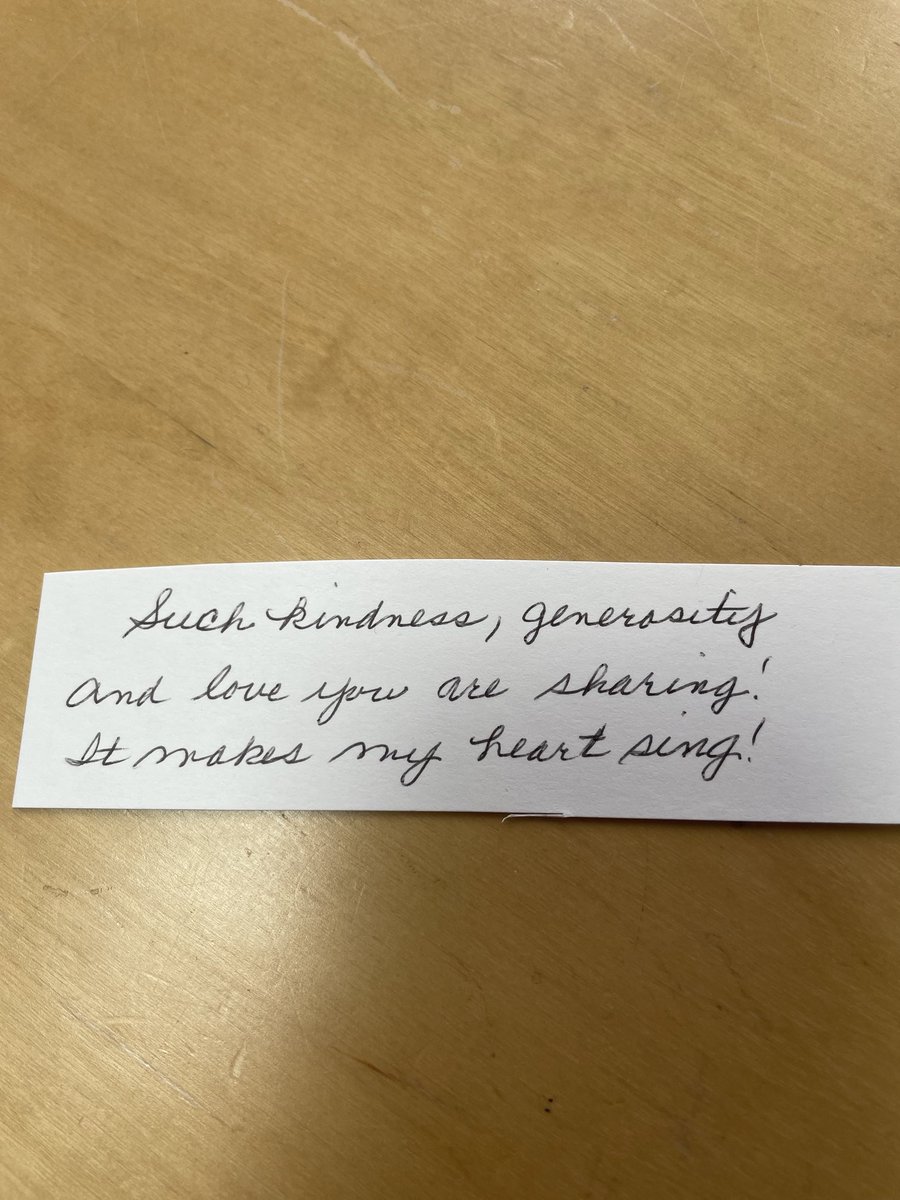 Such kindness, generosity
and love you are sharing!
It makes my heart sing!